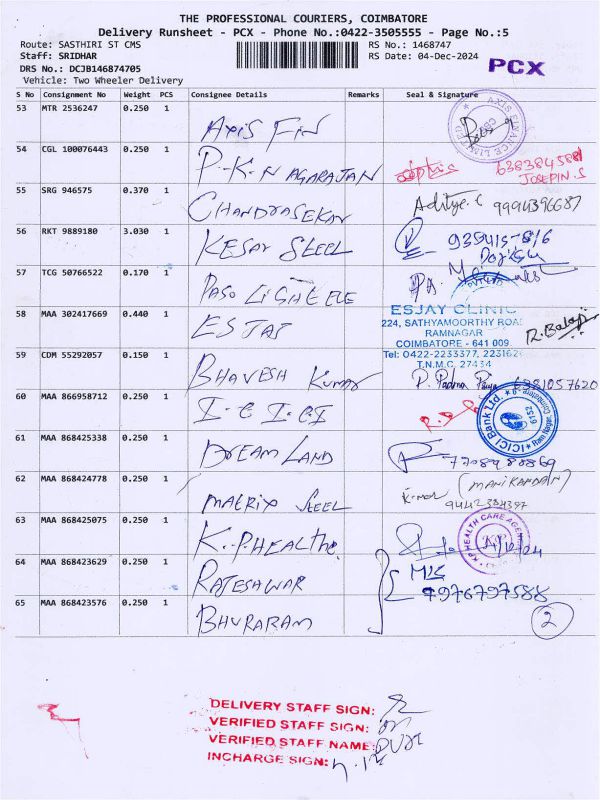 THE PROFESSIONAL COURIERS, COIMBATORE
Delivery Runsheet - PCX - Phone No.:0422-3505555 - Page No.:5
Route: SASTHIRI ST CMS
RS No.: 1468747
Staff: SRIDHAR
RS Date: 04-Dec-2024
DRS No.: DCJB146874705
PCX
Vehicle: Two Wheeler Delivery
S No Consignment No Weight PCS Consignee Details Remarks Seal & Signature
53 MTR 2536247 0.250 1 Axis Fin AXIS FINANCE LIMITED
54 CGL 100076443 0.250 1 P.K.NAGARAJAN 6383845881
JOSEPIN.S
55 SRG 946575 0.370 1 CHANDRASEKAR Aditye.C 9994396687
56 RKT 9889180 3.030 1 KESAR STEEL
57 TCG 50766522 0.170 1 PASO LIGHT ELE
58 MAA 302417669 0.440 1 ESJAI ESJAY CLINIC
224, SATHYAMOORTHY ROAD
RAMNAGAR
COIMBATORE - 641 009.
Tel: 0422-2233377,
T.N.M.C. 27434
R.Balaji
59 CDM 55292057 0.150 1 BHAVESH KUMAR P. Padma Priya 6381057620
60 MAA 866958712 0.250 1 I.C.I.C.I ICICI Bank Ltd.
61 MAA 868425338 0.250 1 DREAM LAND
62 MAA 868424778 0.250 1 MATRIX STEEL (MANIKANDAN)
63 MAA 868425075 0.250 1 K.P.HEALTHC KP HEALTH CARE AGEN
64 MAA 868423629 0.250 1 RAJESHWAR
7976797588
65 MAA 868423576 0.250 1 BHURARAM 2
DELIVERY STAFF SIGN:
VERIFIED STAFF SIGN:
VERIFIED STAFF NAME:
INCHARGE SIGN: